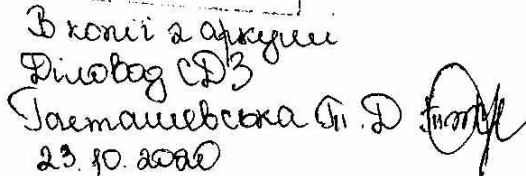 В копії 2 аркуші
Діловод СДЗ
Гасташевська Т. Д
23.10.2020